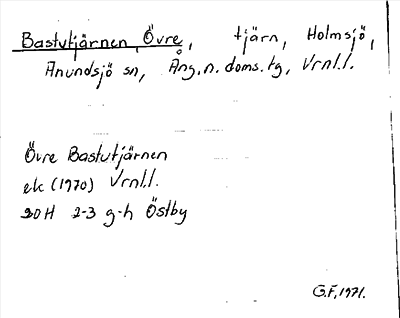 Bastutjärnen, Övre, tjärn, Holmsjö,
Anundsjö sn, Ång.n.doms.tg, Vrnl.l.
Övre Bastutjärnen
ek (1970) Vrnl.l.
20H 2-3 g-h Östby
G.F, 1971.